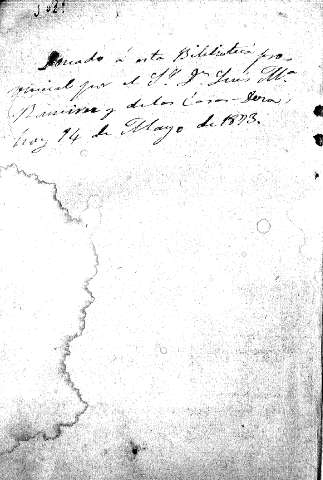 Donado á esta Biblioteca pro-
vincial por el Sr. Dn Luis Mª
Ramirez y de las Casas-Deza,
hoy 14 de Mayo de 1873.